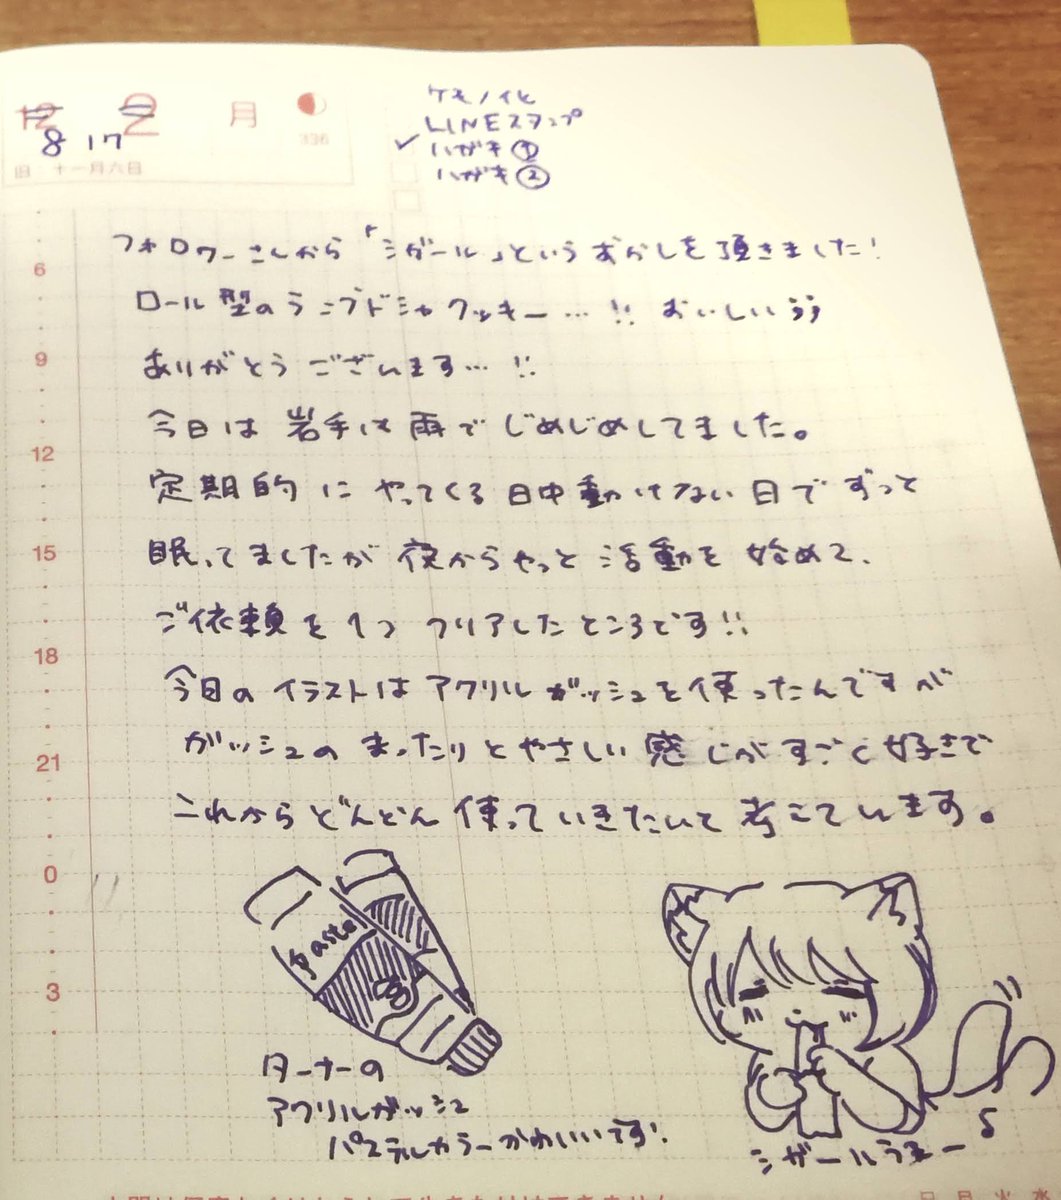 12 2 月
8 17
336
旧:十一月六日
ケモノ化
LINEスタンプ
✓ ハガキ①
ハガキ②
フォロワーさんから「シガール」というおかしを頂きました!
ロール型のラングドシャクッキー…!! おいしい;;
ありがとうございます…!!
今日は岩手は雨でじめじめしてました。
定期的にやってくる日中動けない日でずっと
眠ってましたが夜からやっと活動を始めて、
ご依頼を1つクリアしたところです!!
今日のイラストはアクリルガッシュを使ったんですが
ガッシュのまったりとやさしい感じがすごく好きで
これからどんどん使っていきたいと考えています。
6
9
12
15
18
21
0
3
Pastel
ターナーの
アクリルガッシュ
パステルカラーかわいいです!
シガールうまー♪